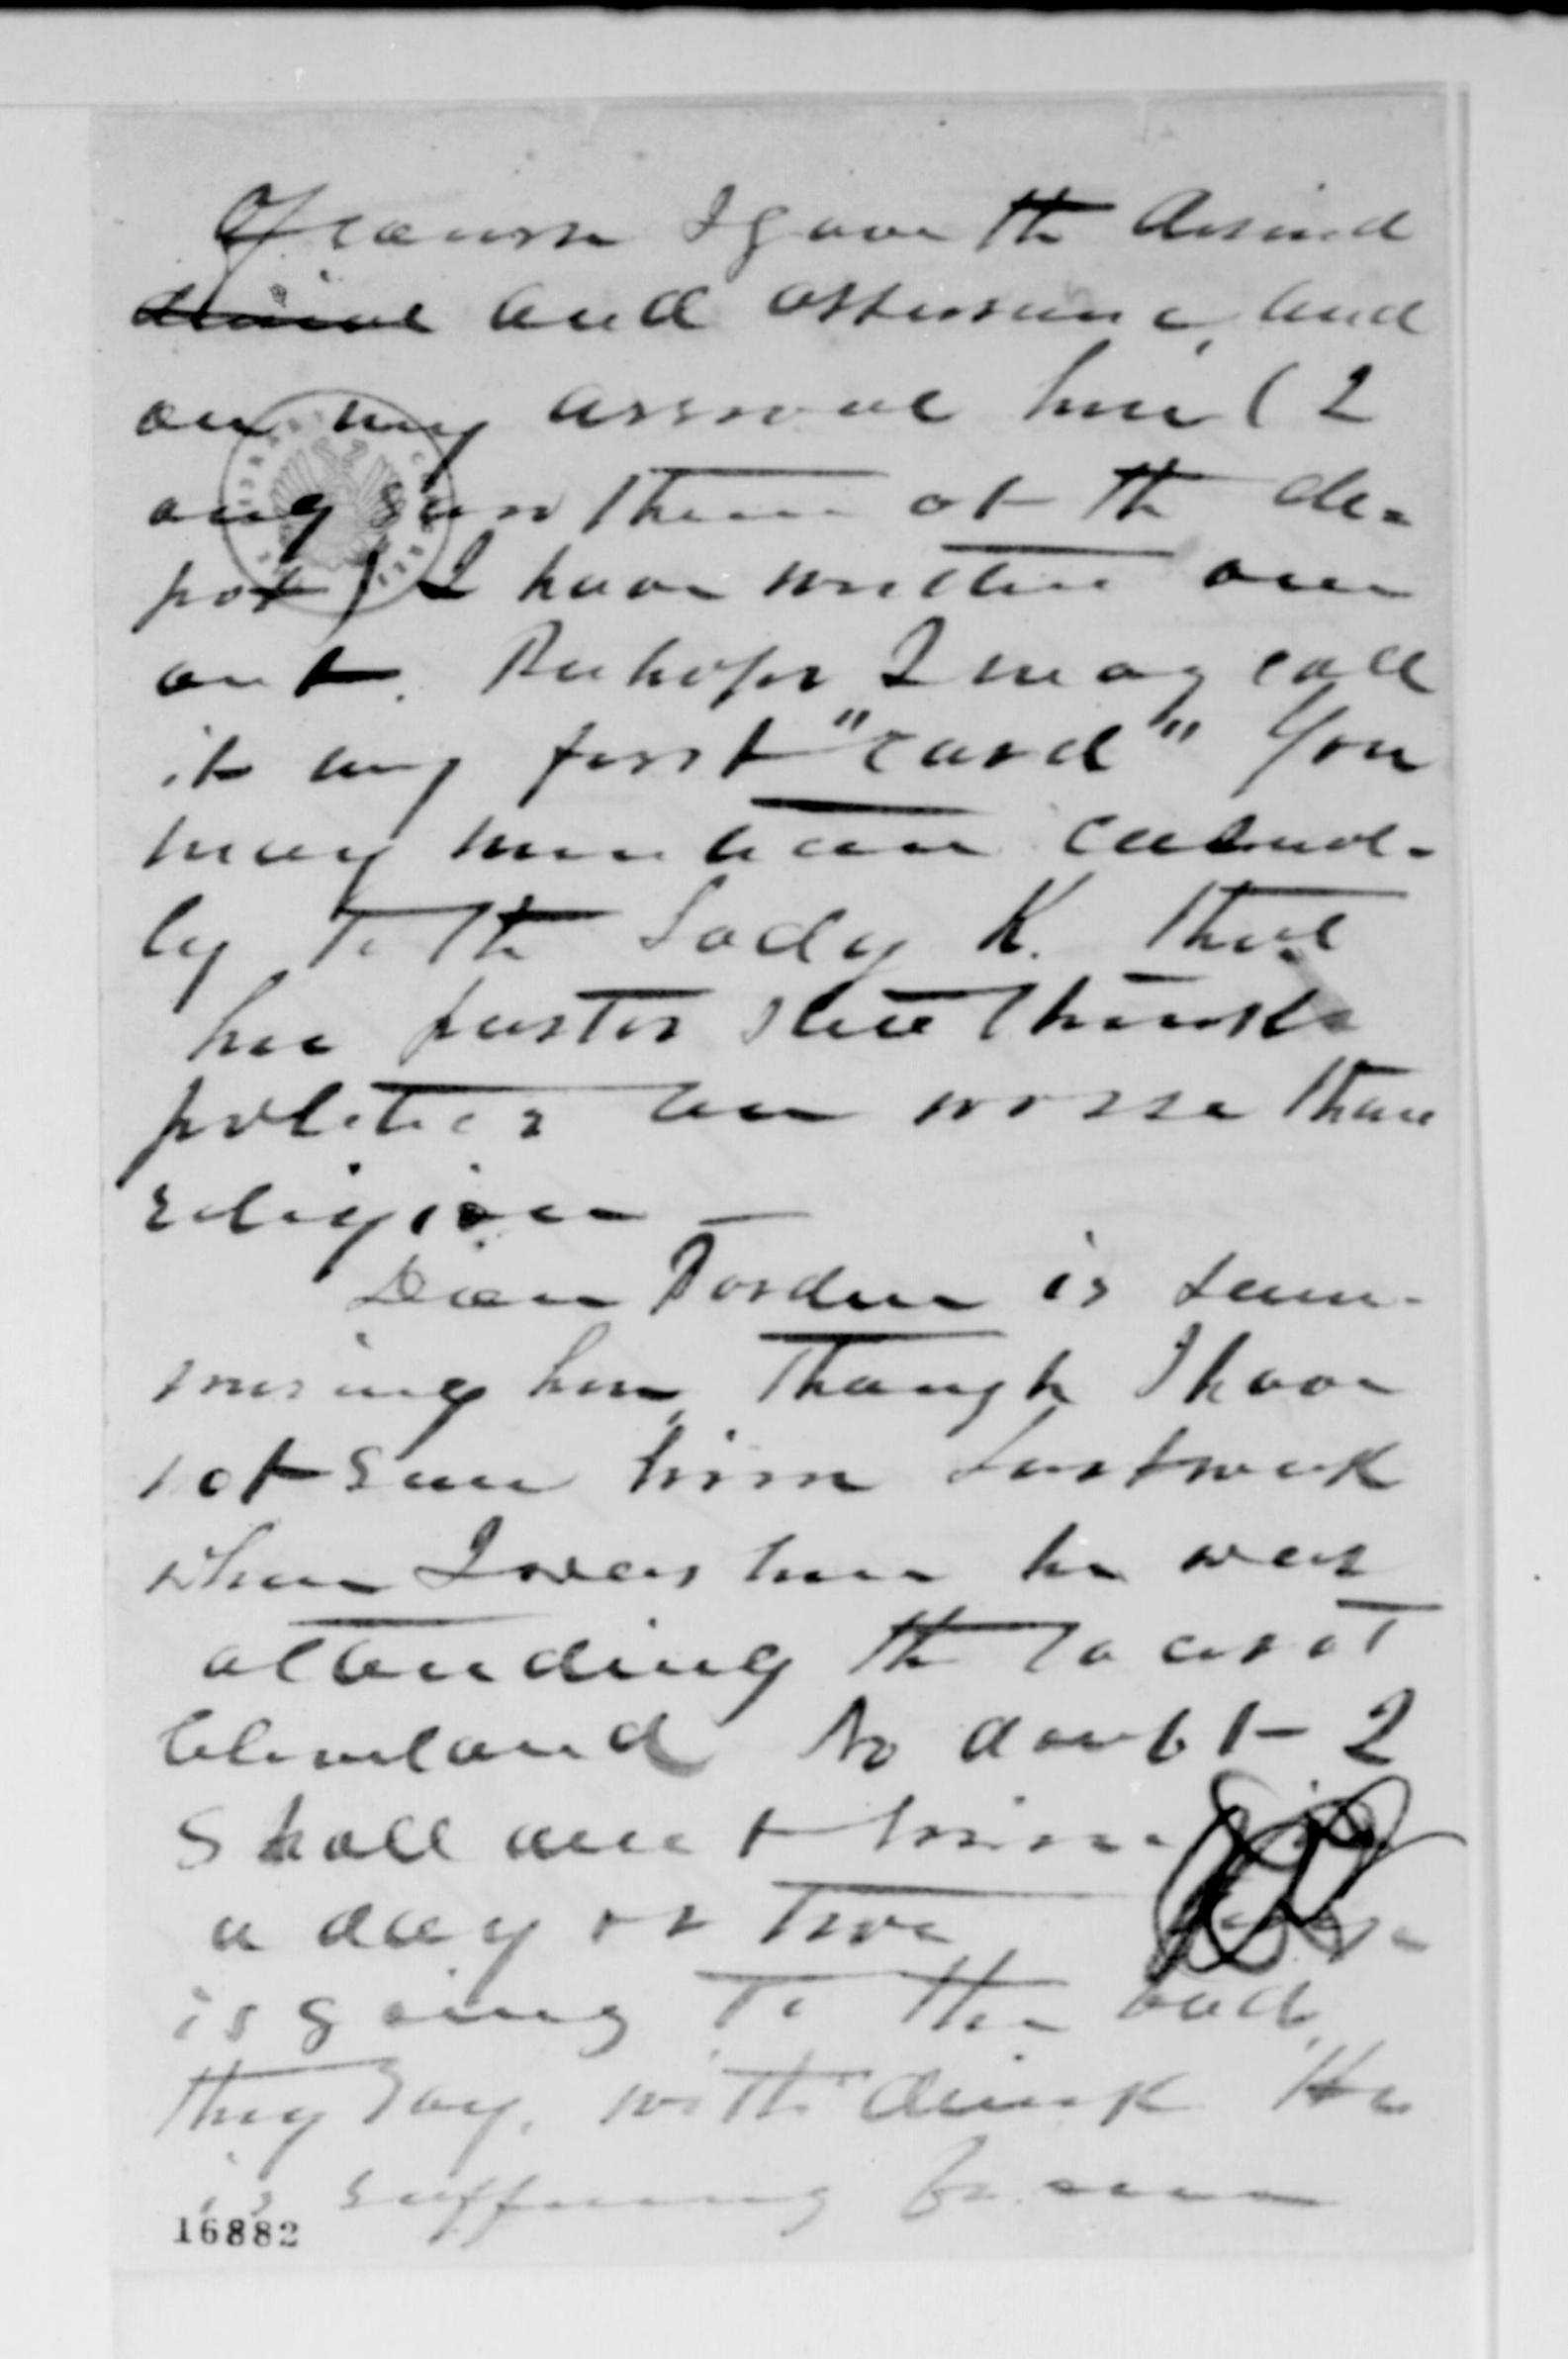 Of course I gave the desired
denial and assurance, and
on my arrival here (I
only saw them at the de-
pot) I have written one
out. Perhaps I may call
it my first "card" You
may mention casual-
ly to the Lady K. that
her pastor still thinks
politics are worse than
religion —
Dan is sum-
mering here, though I have
not seen him Last week
when I was here he was
attending the races at
Cleveland No doubt I
shall meet him
a day or two
is going to the bad,
they say, with drink He
is suffering from
16882